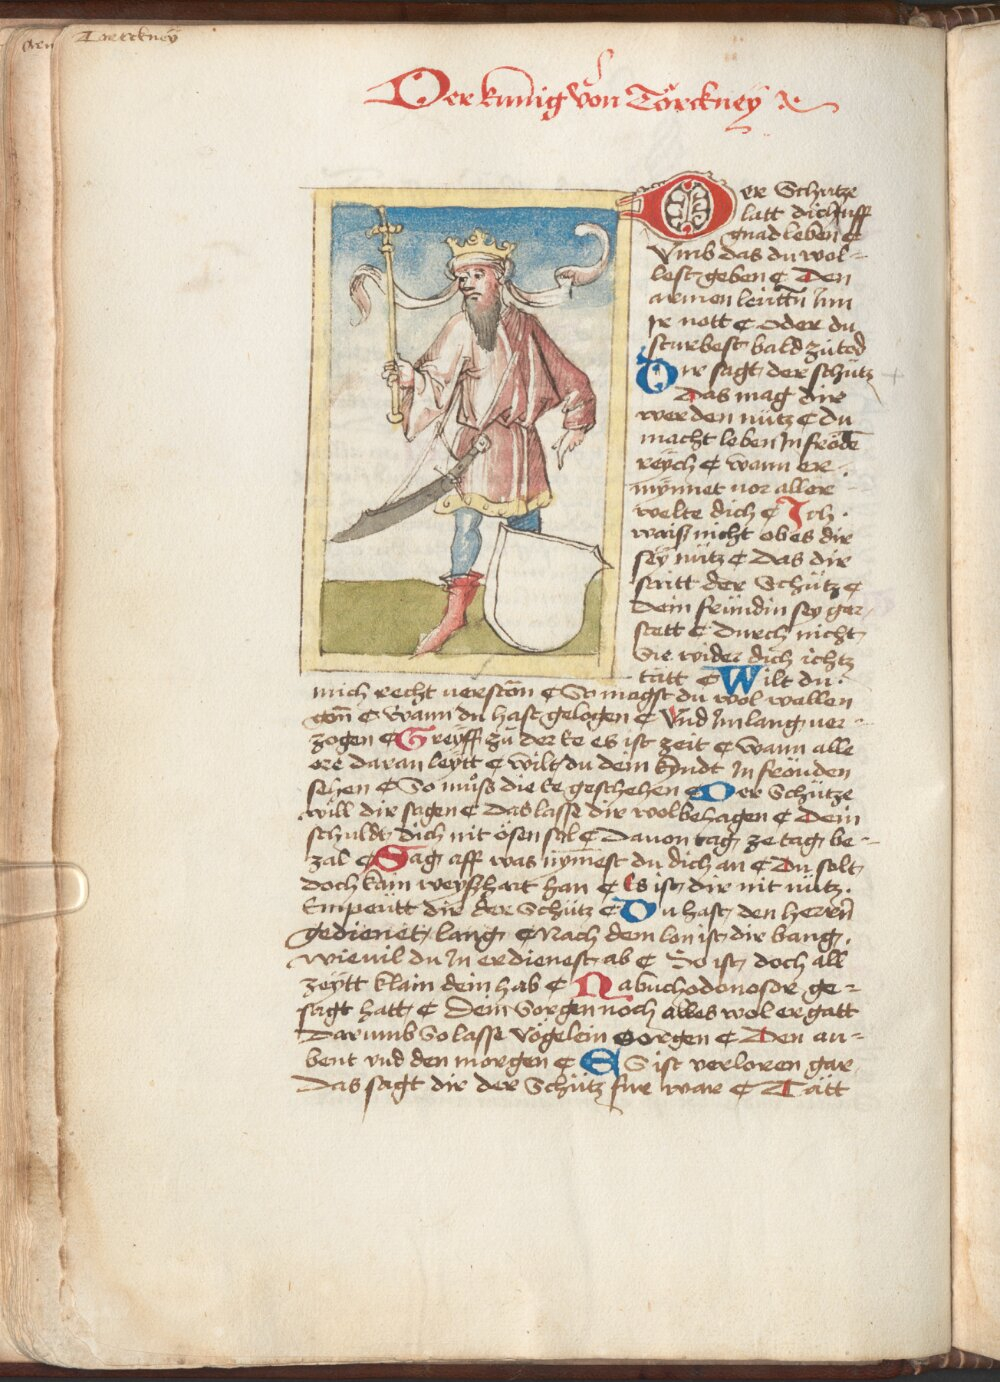 Torrckney
Der künig von Törckney
Der Schütze
latt dich uff
gnad leben ¢
Vmb das du wol-
lest geben ¢ Den
armen leuttn Inn
ir nott ¢ oder du
sturbest bald zů tod
Dir sagt der schütz
Das mag dir
werden nütz ¢ du
macht leben In fröde
reych ¢ wann er
mynnet vor aller
welte dich ¢ Ich
waiß nicht ob es dir
sey nütz ¢ Das dir
seitt der Schütz ¢
Dein fründin sey ger
stett ¢ Durch nicht
Sie wider dich ichtz
tätt ¢ Wilt du
mich recht verston ¢ So magst du wol wallen
gon ¢ Wann du hast gelogen ¢ Vnd In lang ver-
zogen ¢ Greyff zů der ee es ist zeit ¢ wann alle
ere daran leytt ¢ wilt du dein kyndt In fröuden
sehen ¢ So můß die ee geschehen ¢ Der Schütze
will dir sagen ¢ Das lasse dir wol behagen ¢ Dein
schuldt dich nit ösen sol ¢ Dauon tag ze tag be-
zal ¢ Sag aff was nymest du dich an ¢ Du solt
doch kain weyßhait han ¢ Es ist dir nit nütz
Empeütt dir der Schütz ¢ Du hast den herrn
gedienet lang ¢ Nach dem lon ist dir bang
wieuil du In erdienest ab ¢ So ist doch all
zeytt klain dein hab ¢ Nabuchodonosor ge-
sagt hatt ¢ Dein Sorgen noch alles wol ergatt
Darumb So lasse vögelein sorgen ¢ Den au-
bent vnd den morgen ¢ Es ist verloren gar
Das sagt dir der Schütz fur war ¢ Tätt